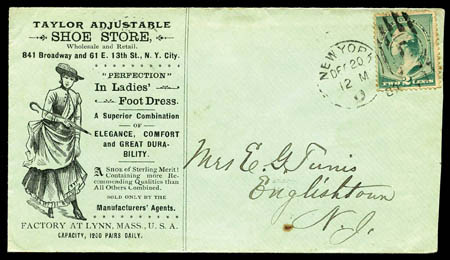 TAYLOR ADJUSTABLE
SHOE STORE,
Wholesale and Retail.
841 Broadway and 61 E. 13th St., N. Y. City.
"PERFECTION"
In Ladies'
Foot Dress.
A Superior Combination
OF
ELEGANCE, COMFORT
and GREAT DURA-
BILITY.
A SHOE of Sterling Merit!
Containing more Re-
commending Qualities than
All Others Combined.
SOLD ONLY BY THE
Manufacturers' Agents.
FACTORY AT LYNN, MASS., U. S. A.
CAPACITY, 1200 PAIRS DAILY.
NEW YORK
DEC 20
12 M
TWO CENTS
Mrs E. G. Tunis
Englishtown
N. J.